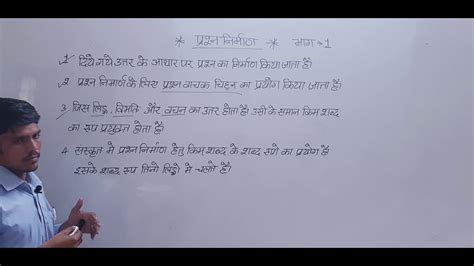 * प्रश्न निर्माण * भाग → 1
1. दिये गये उत्तर के आधार पर प्रश्न का निर्माण किया जाता है।
2. प्रश्न निमार्ण के लिए प्रश्न वाचक चिह्न का प्रयोग किया जाता है।
3. जिस लिङ्ग, विभक्ति और वचन का उत्तर होता है। उसी के समान किम शब्द
का रूप प्रयुक्त होता है।
4. संस्कृत मे प्रश्न निर्माण हेतु किम शब्द के शब्द रूपो का प्रयोग है
इसके शब्द रूप तिनो लिङ्गो मे चलते है।